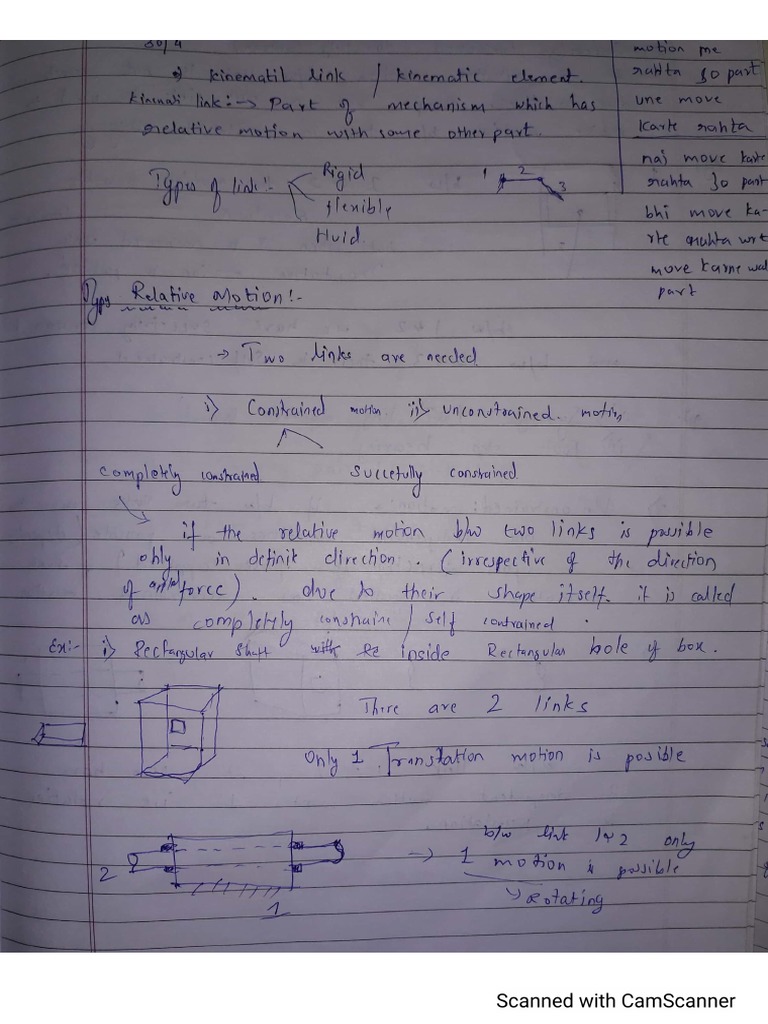 30/4
kinematil link / kinematic element.
kinemati link:-> Part of mechanism which has
relative motion with some other part.
Types of link:-
Rigid
flexible
fluid
1 2 3
motion me
rahta jo part
une move
karte rahta
nai move karte
rahta jo part
bhi move ka-
rte rahta wrt
move karne wal
part
Types Relative Motion:-
-> Two links are needed.
i) Constrained motion ii) unconstrained motion
completely constrained
Succefully constrained
if the relative motion b/w two links is possible
only in definit direction. (irrespective of the direction
of force). due to their shape itself. it is called
as completely constraine / self contrained.
Ex:- i) Rectangular shaft inside Rectangular hole of box.
There are 2 links
Only 1 Translation motion is posible
b/w link 1 & 2 only
-> 1 motion is possible
rotating
2
1
Scanned with CamScanner